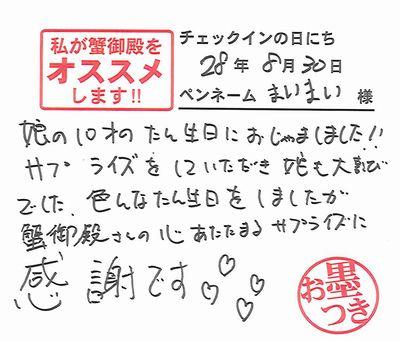 私が蟹御殿を
オススメ
します!!
チェックインの日にち
28年 8月30日
ペンネーム まいまい 様
娘の10才のたん生日におじゃましました!!
サプライズをしていただき娘も大喜び
でした。色んなたん生日をしましたが
蟹御殿さんの心あたたまるサプライズに
感謝です♡♡♡♡
お墨つき